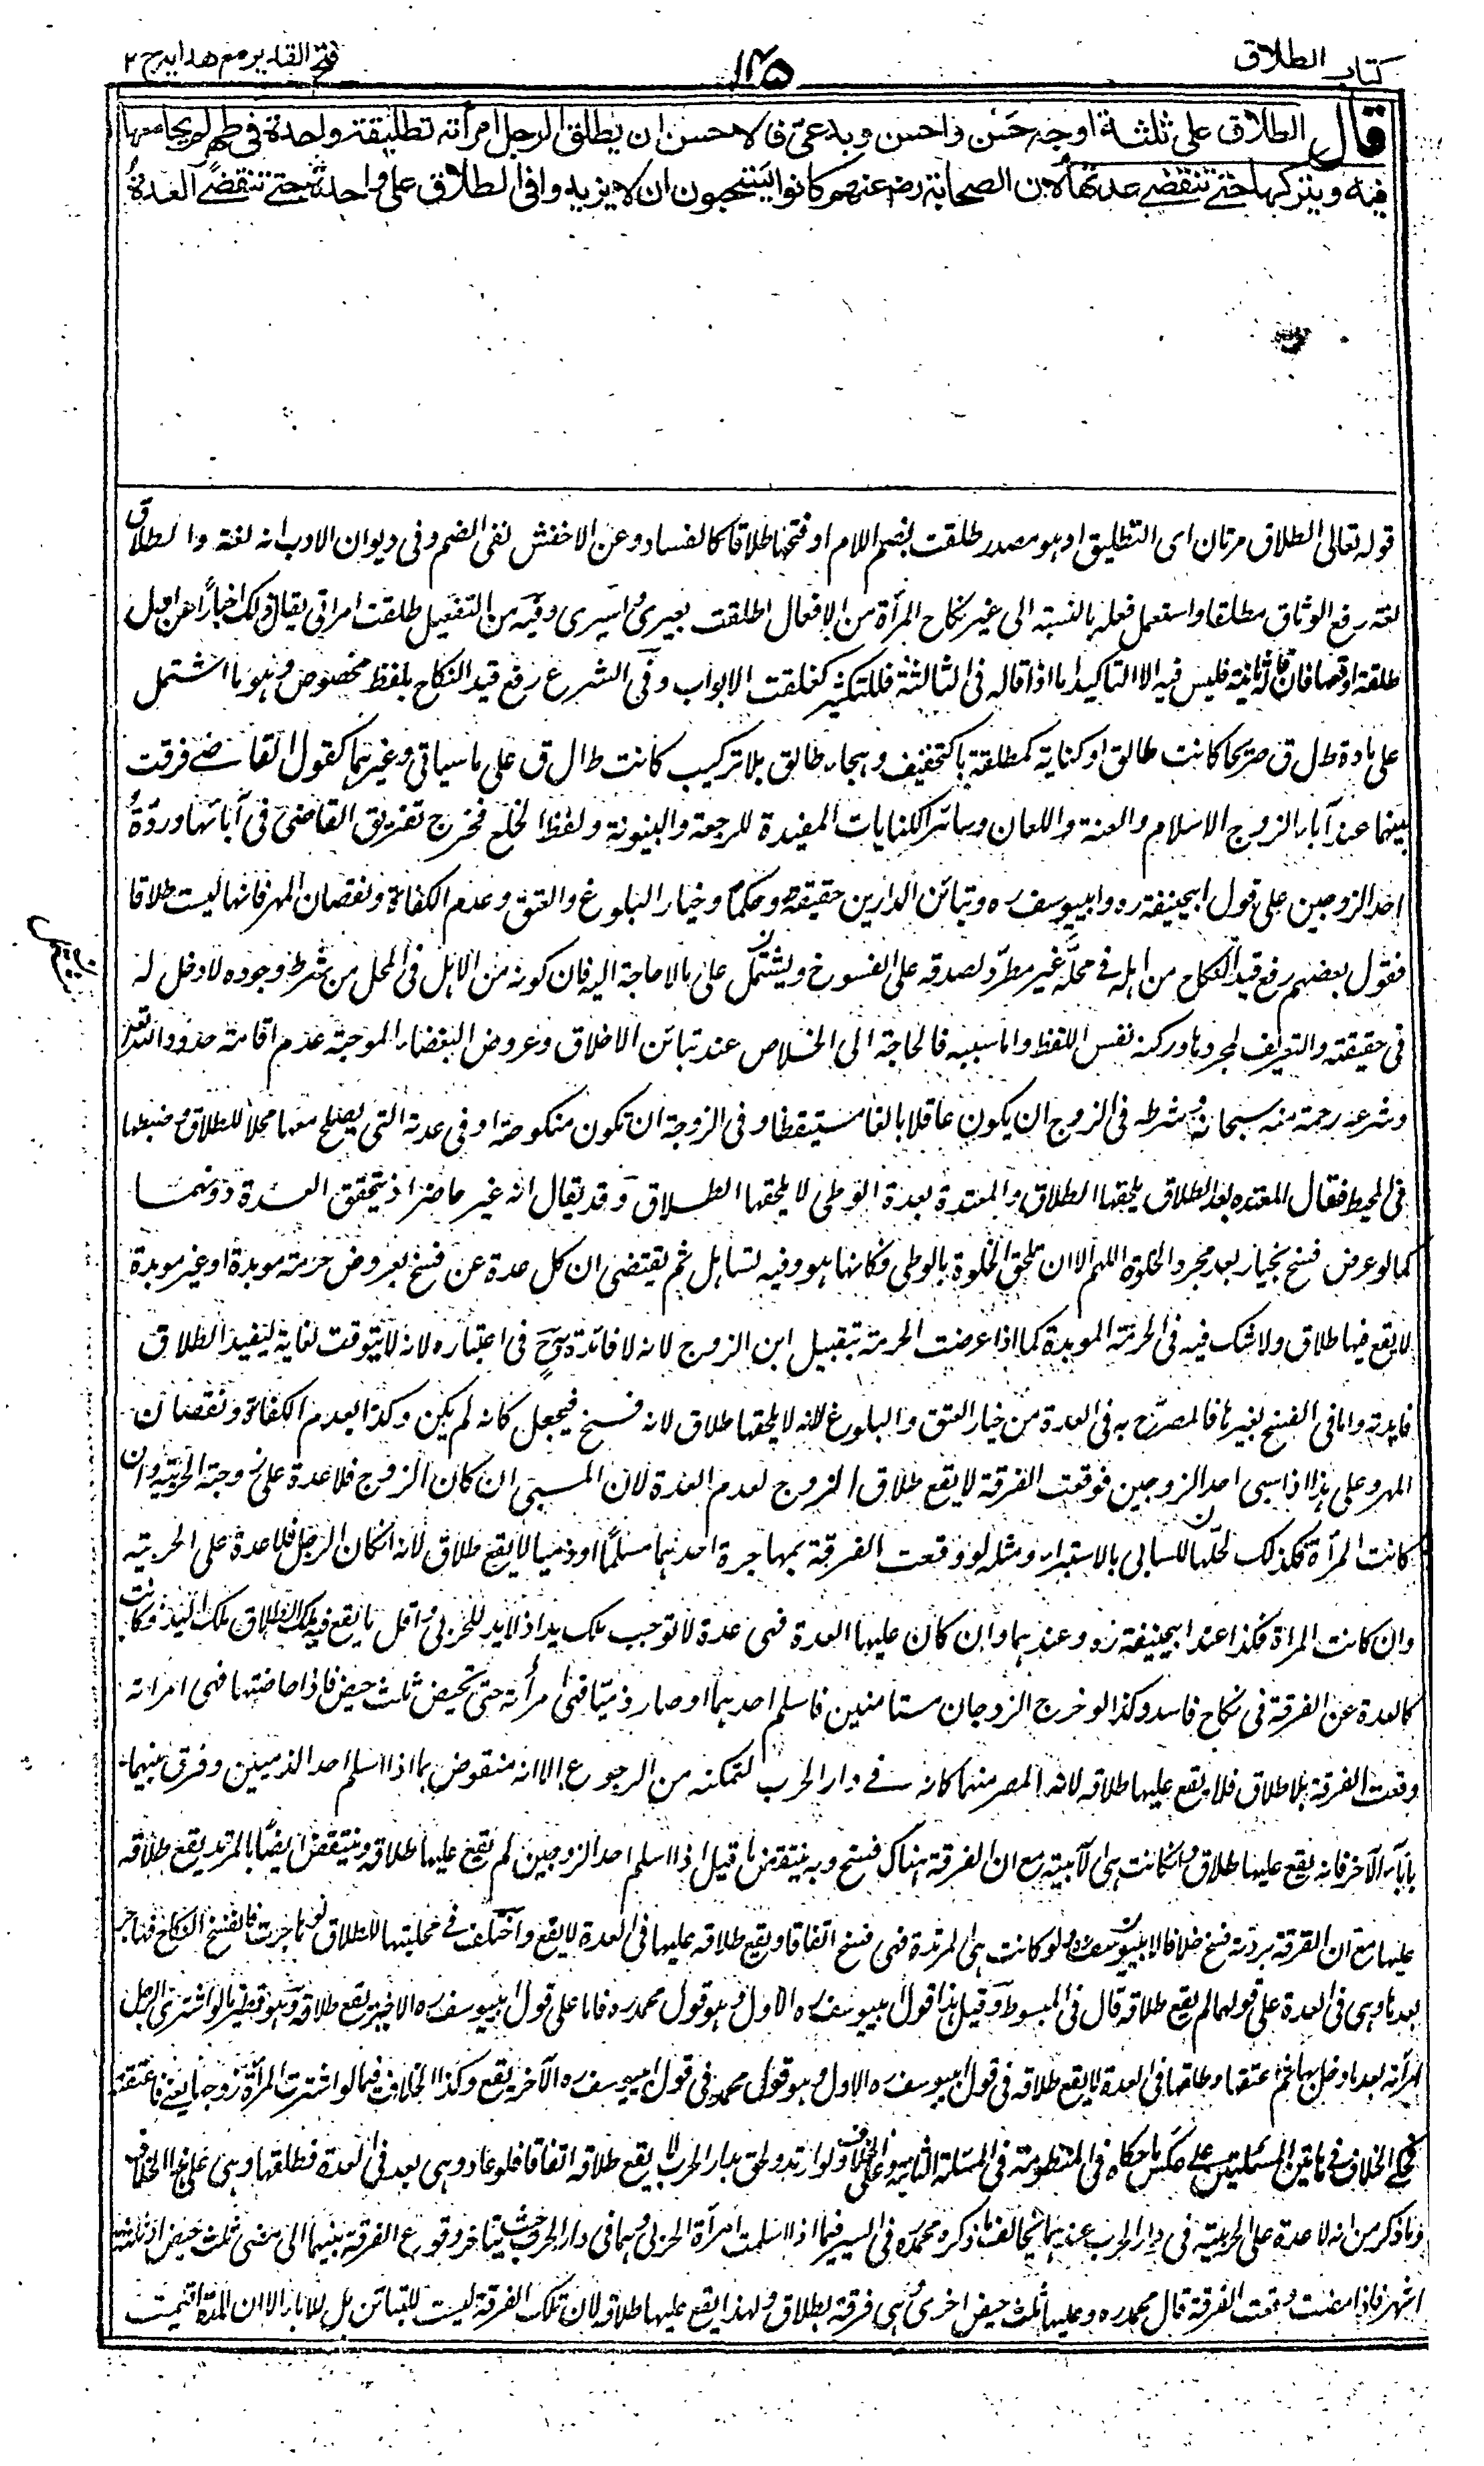 كتاب الطلاق
١٤٥
فتح القدير مع هدايه ج ٢
قال الطلاق على ثلثة اوجه حسن واحسن وبدعى فالاحسن ان يطلق الرجل امرأته تطليقة واحدة فى طهر لم يجامعها
فيه ويتركها حتى تنقضى عدتها لان الصحابة رض عنهم كانوا يستحبون ان لا يزيدوا فى الطلاق على واحدة حتى تنقضى العدة
قوله تعالى الطلاق مرتان اى التطليق او هو مصدر طلقت بضم اللام او فتحها طلاقا كالفساد وعن الاخفش نفى الضم وفى ديوان الادب انه لغة والطلاق
لغة رفع الوثاق مطلقا واستعمل فعله بالنسبة الى غير نكاح المرأة من الافعال اطلقت بعيرى واسيرى وفيه من التفعيل طلقت امراتى يقال ذلك اخبارا عن اول
طلقة اوقعها فان قاله ثانية فليس فيه الا التاكيد اما اذا قاله فى الثالثة فللتكثير كغلقت الابواب وفى الشرع رفع قيد النكاح بلفظ مخصوص وهو ما اشتمل
على مادة ط ل ق صريحا كانت طالق او كناية كمطلقة بالتخفيف وهجاء طالق بلا تركيب كانت ط ا ل ق على ما سياتى وغيرهما كقول القاضى فرقت
بينهما عند آباء الزوج الاسلام والعنة واللعان وسائر الكنايات المفيدة للرجعة والبينونة ولفظ الخلع فخرج تفريق القاضى فى آبائها وردة
احد الزوجين على قول ابيحنيفة ره وابيوسف ره وتبائن الدارين حقيقة وحكما وخيار البلوغ والعتق وعدم الكفاة ونقصان المهر فانها ليست طلاقا
فقول بعضهم رفع قيد النكاح من اهله فى محله غير مطرد لصدقه على الفسوخ ويشتمل على مالا حاجة اليه فان كونه من الاهل فى المحل من شرط وجوده لا دخل له
فى حقيقته والتعريف لمجردها وركنه نفس اللفظ واما سببه فالحاجة الى الخلاص عند تبائن الاخلاق وعروض البغضاء الموجبة عدم اقامة حدود الله تعالى
وشرعه رحمة منه سبحانه وشرطه فى الزوج ان يكون عاقلا بالغا مستيقظا وفى الزوجة ان تكون منكوحة او فى عدته التى يصلح معها محلا للطلاق وضبطها
فى المحيط فقال المعتده بعد الطلاق يلحقها الطلاق والمعتدة بعدة الوطى لا يلحقها الطلاق وقد يقال انه غير حاضر اذ تتحقق العدة دونهما
كما لو عرض فسخ بخيار بعد مجرد الخلوة اللهم الا ان تلحق الخلوة بالوطى فكانها هو وفيه تساهل ثم يقتضى ان كل عدة عن فسخ بعروض حرمة موبدة او غير موبدة
لا يقع فيها طلاق ولا شك فيه فى الحرمة الموبدة كما اذا عرضت الحرمة بتقبيل ابن الزوج لانه لا فائدة ح فى اعتباره لانه لا يتوقت لغاية ليفيد الطلاق
فايدته واما فى الفسخ بغيرها فالمصرح به فى العدة من خيار العتق والبلوغ لانه لا يلحقها طلاق لانه فسخ فيجعل كانه لم يكن وكذا بعدم الكفاة ونقصان
المهر وعلى هذا اذا سبى احد الزوجين فوقعت الفرقة لا يقع طلاق الزوج لعدم العدة لان المسبى ان كان الزوج فلا عدة على زوجته الحربية وان
كانت المرأة فكذلك لحلها للسابى بالاستبراء ومثله لو وقعت الفرقة بمهاجرة احدهما مسلما او ذميا لا يقع طلاق لانه ان كان الرجل فلا عدة على الحربية
وان كانت المراة فكذا عند ابيحنيفة ره وعندهما وان كان عليها العدة فهى عدة لا توجب ملك يد اذ لا يد للحربى واقل ما يقع فيه ملك الطلاق ملك اليد وكانت
كالعدة عن الفرقة فى نكاح فاسد وكذا لو خرج الزوجان مستامنين فاسلم احدهما او صار ذميا فهى امرأته حتى تحيض ثلث حيض فاذا حاضتها فهى امراته
وقعت الفرقة بلا طلاق فلا يقع عليها طلاقه لان المصر منهما كانه فى دار الحرب لتمكنه من الرجوع الا انه منقوض بما اذا اسلم احد الذميين وفرق بينهما
باباء الآخر فانه يقع عليها طلاق وان كانت هى الآبية مع ان الفرقة هناك فسخ وبه ينتقض ما قيل اذا اسلم احد الزوجين لم يقع عليها طلاقه وينتقض ايضا بالمرتد يقع طلاقه
عليها مع ان الفرقة بردته فسخ خلافا لابيوسف ره ولو كانت هى المرتدة فهى فسخ اتفاقا ويقع طلاقه عليها فى العدة لا يقع واختلف فى محليتها للطلاق لو هاجرت فانفسخ النكاح فهاجر
بعدها وهى فى العدة على قولهما لم يقع طلاقه قال فى المبسوط وقيل هذا قول ابيوسف ره الاول وهو قول محمد ره فاما على قول ابيوسف ره الاخير يقع طلاقه وهو نظير ما لو اشترى الرجل
امرأته بعد ما دخل بها ثم اعتقها وطلقها فى العدة لا يقع طلاقه فى قول ابيوسف ره الاول وهو قول محمد وفى قول ابيوسف ره الآخر يقع وكذا الخلاف فيما لو اشترت المرأة زوجها يعنى فاعتقته
فحكى الخلاف فى هاتين المسئلتين على عكس ما حكاه فى المنظومة فى المسئلة الثانية ولو ارتد ولحق بدار الحرب لا يقع طلاقه اتفاقا فلو عاد وهى بعد فى العدة فطلقها وهى على هذا الخلاف
وما ذكر من انه لا عدة على الحربية فى دار الحرب عندهما يخالف ما ذكره محمد ره فى السير فيما اذا اسلمت امرأة الحربى وهما فى دار الحرب حيث يتاخر وقوع الفرقة بينهما الى مضى ثلث حيض او ثلثة
اشهر فاذا مضت وقعت الفرقة قال محمد ره وعليها ثلث حيض اخرى وهى فرقة بطلاق ولهذا يقع عليها طلاقه لان تلك الفرقة ليست للتباين بل للاباء الا ان المدة اقيمت